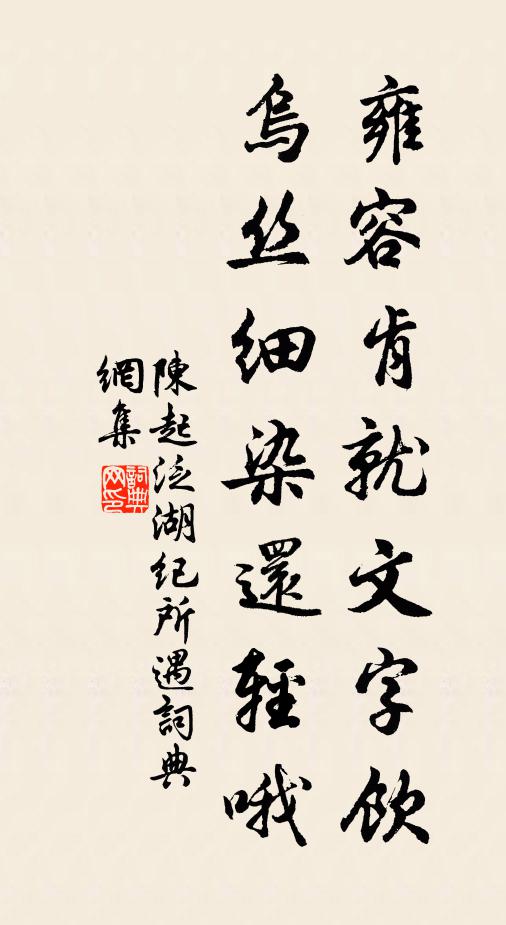 雍容肯就文字飲
烏丝細染還輕哦
陳起泛湖紀所遇詞典
網集
詞典
网印